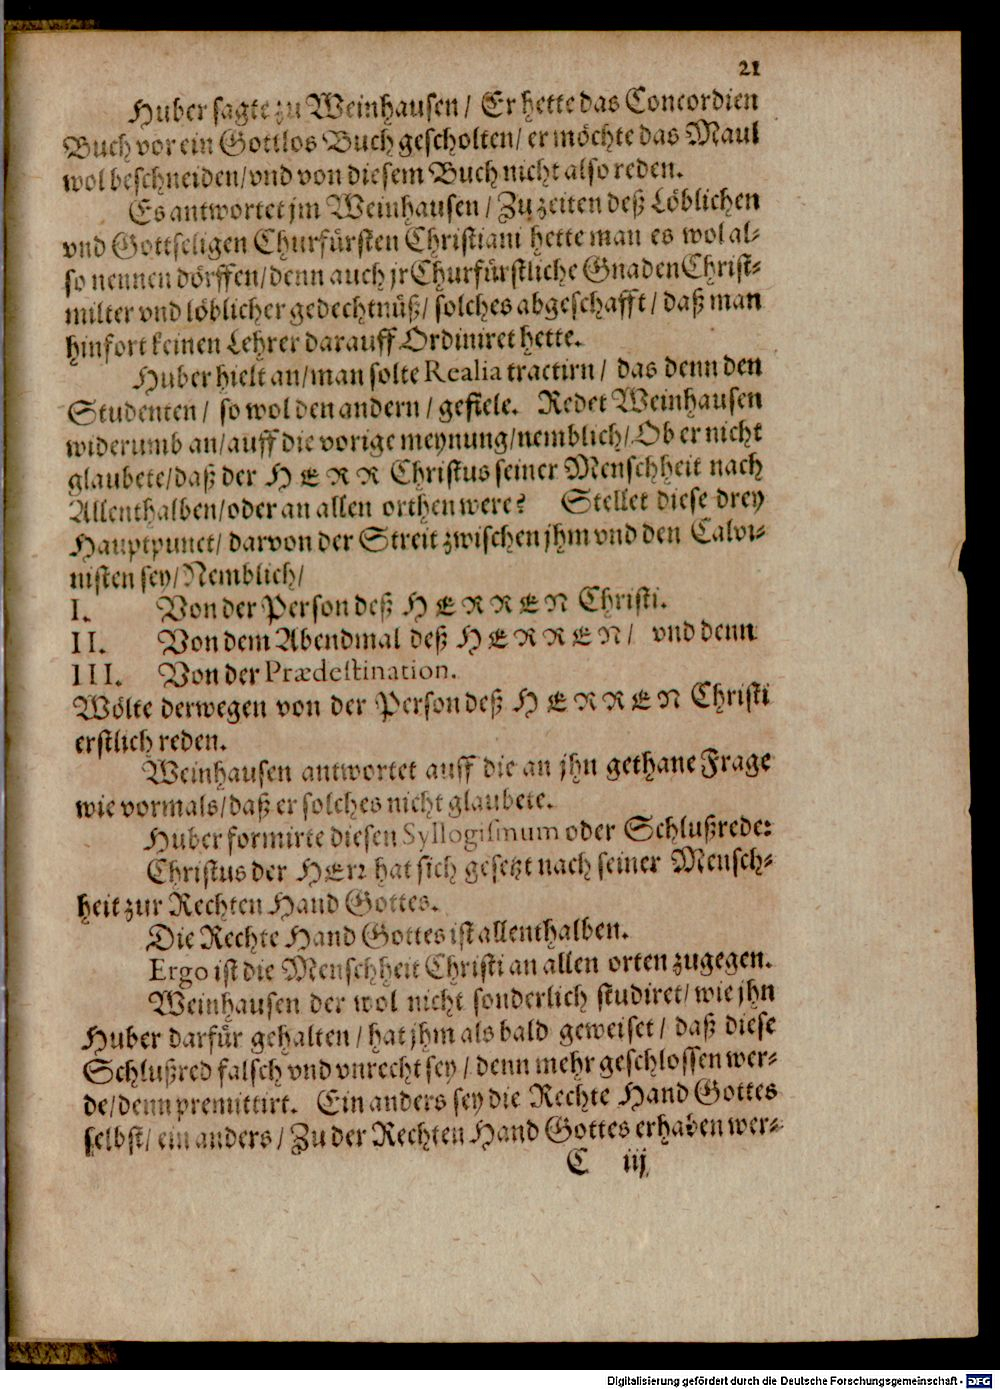 21
Huber sagte zu Weinhausen/ Er hette das Concordien
Buch vor ein Gottlos Buch gescholten/ er möchte das Maul
wol beschneiden/ vnd von diesem Buch nicht also reden.
Es antwortet jm Weinhausen/ Zu zeiten deß Löblichen
vnd Gottseligen Churfürsten Christiani hette man es wol al-
so nennen dörffen/ denn auch jr Churfürstliche Gnaden Christ-
milter vnd löblicher gedechtnüß/ solches abgeschafft/ daß man
hinfort keinen Lehrer darauff Ordiniret hette.
Huber hielt an/ man solte Realia tractirn/ das denn den
Studenten/ so wol den andern/ gefiele. Redet Weinhausen
widerumb an/ auff die vorige meynung/ nemblich/ Ob er nicht
glaubete/ daß der HERR Christus seiner Menschheit nach
Allenthalben/ oder an allen orthen were? Stellet diese drey
Hauptpunct/ darvon der Streit zwischen jhm vnd den Calvi-
nisten sey/ Nemblich/
I. Von der Person deß HERREN Christi.
II. Von dem Abendmal deß HERREN/ vnd denn
III. Von der Prædestination.
Wolte derwegen von der Person deß HERREN Christi
erstlich reden.
Weinhausen antwortet auff die an jhn gethane Frage
wie vormals/ daß er solches nicht glaubete.
Huber formirte diesen Syllogismum oder Schlußrede:
Christus der HErr hat sich gesetzt nach seiner Mensch-
heit zur Rechten Hand Gottes.
Die Rechte Hand Gottes ist allenthalben.
Ergo ist die Menschheit Christi an allen orten zugegen.
Weinhausen der wol nicht sonderlich studiret/ wie jhn
Huber darfür gehalten/ hat jhm als bald geweiset/ daß diese
Schlußred falsch vnd vnrecht sey/ denn mehr geschlossen wer-
de/ denn premittirt. Ein anders sey die Rechte Hand Gottes
selbst/ ein anders/ Zu der Rechten Hand Gottes erhaben wer-
C iij
Digitalisierung gefördert durch die Deutsche Forschungsgemeinschaft - DFG